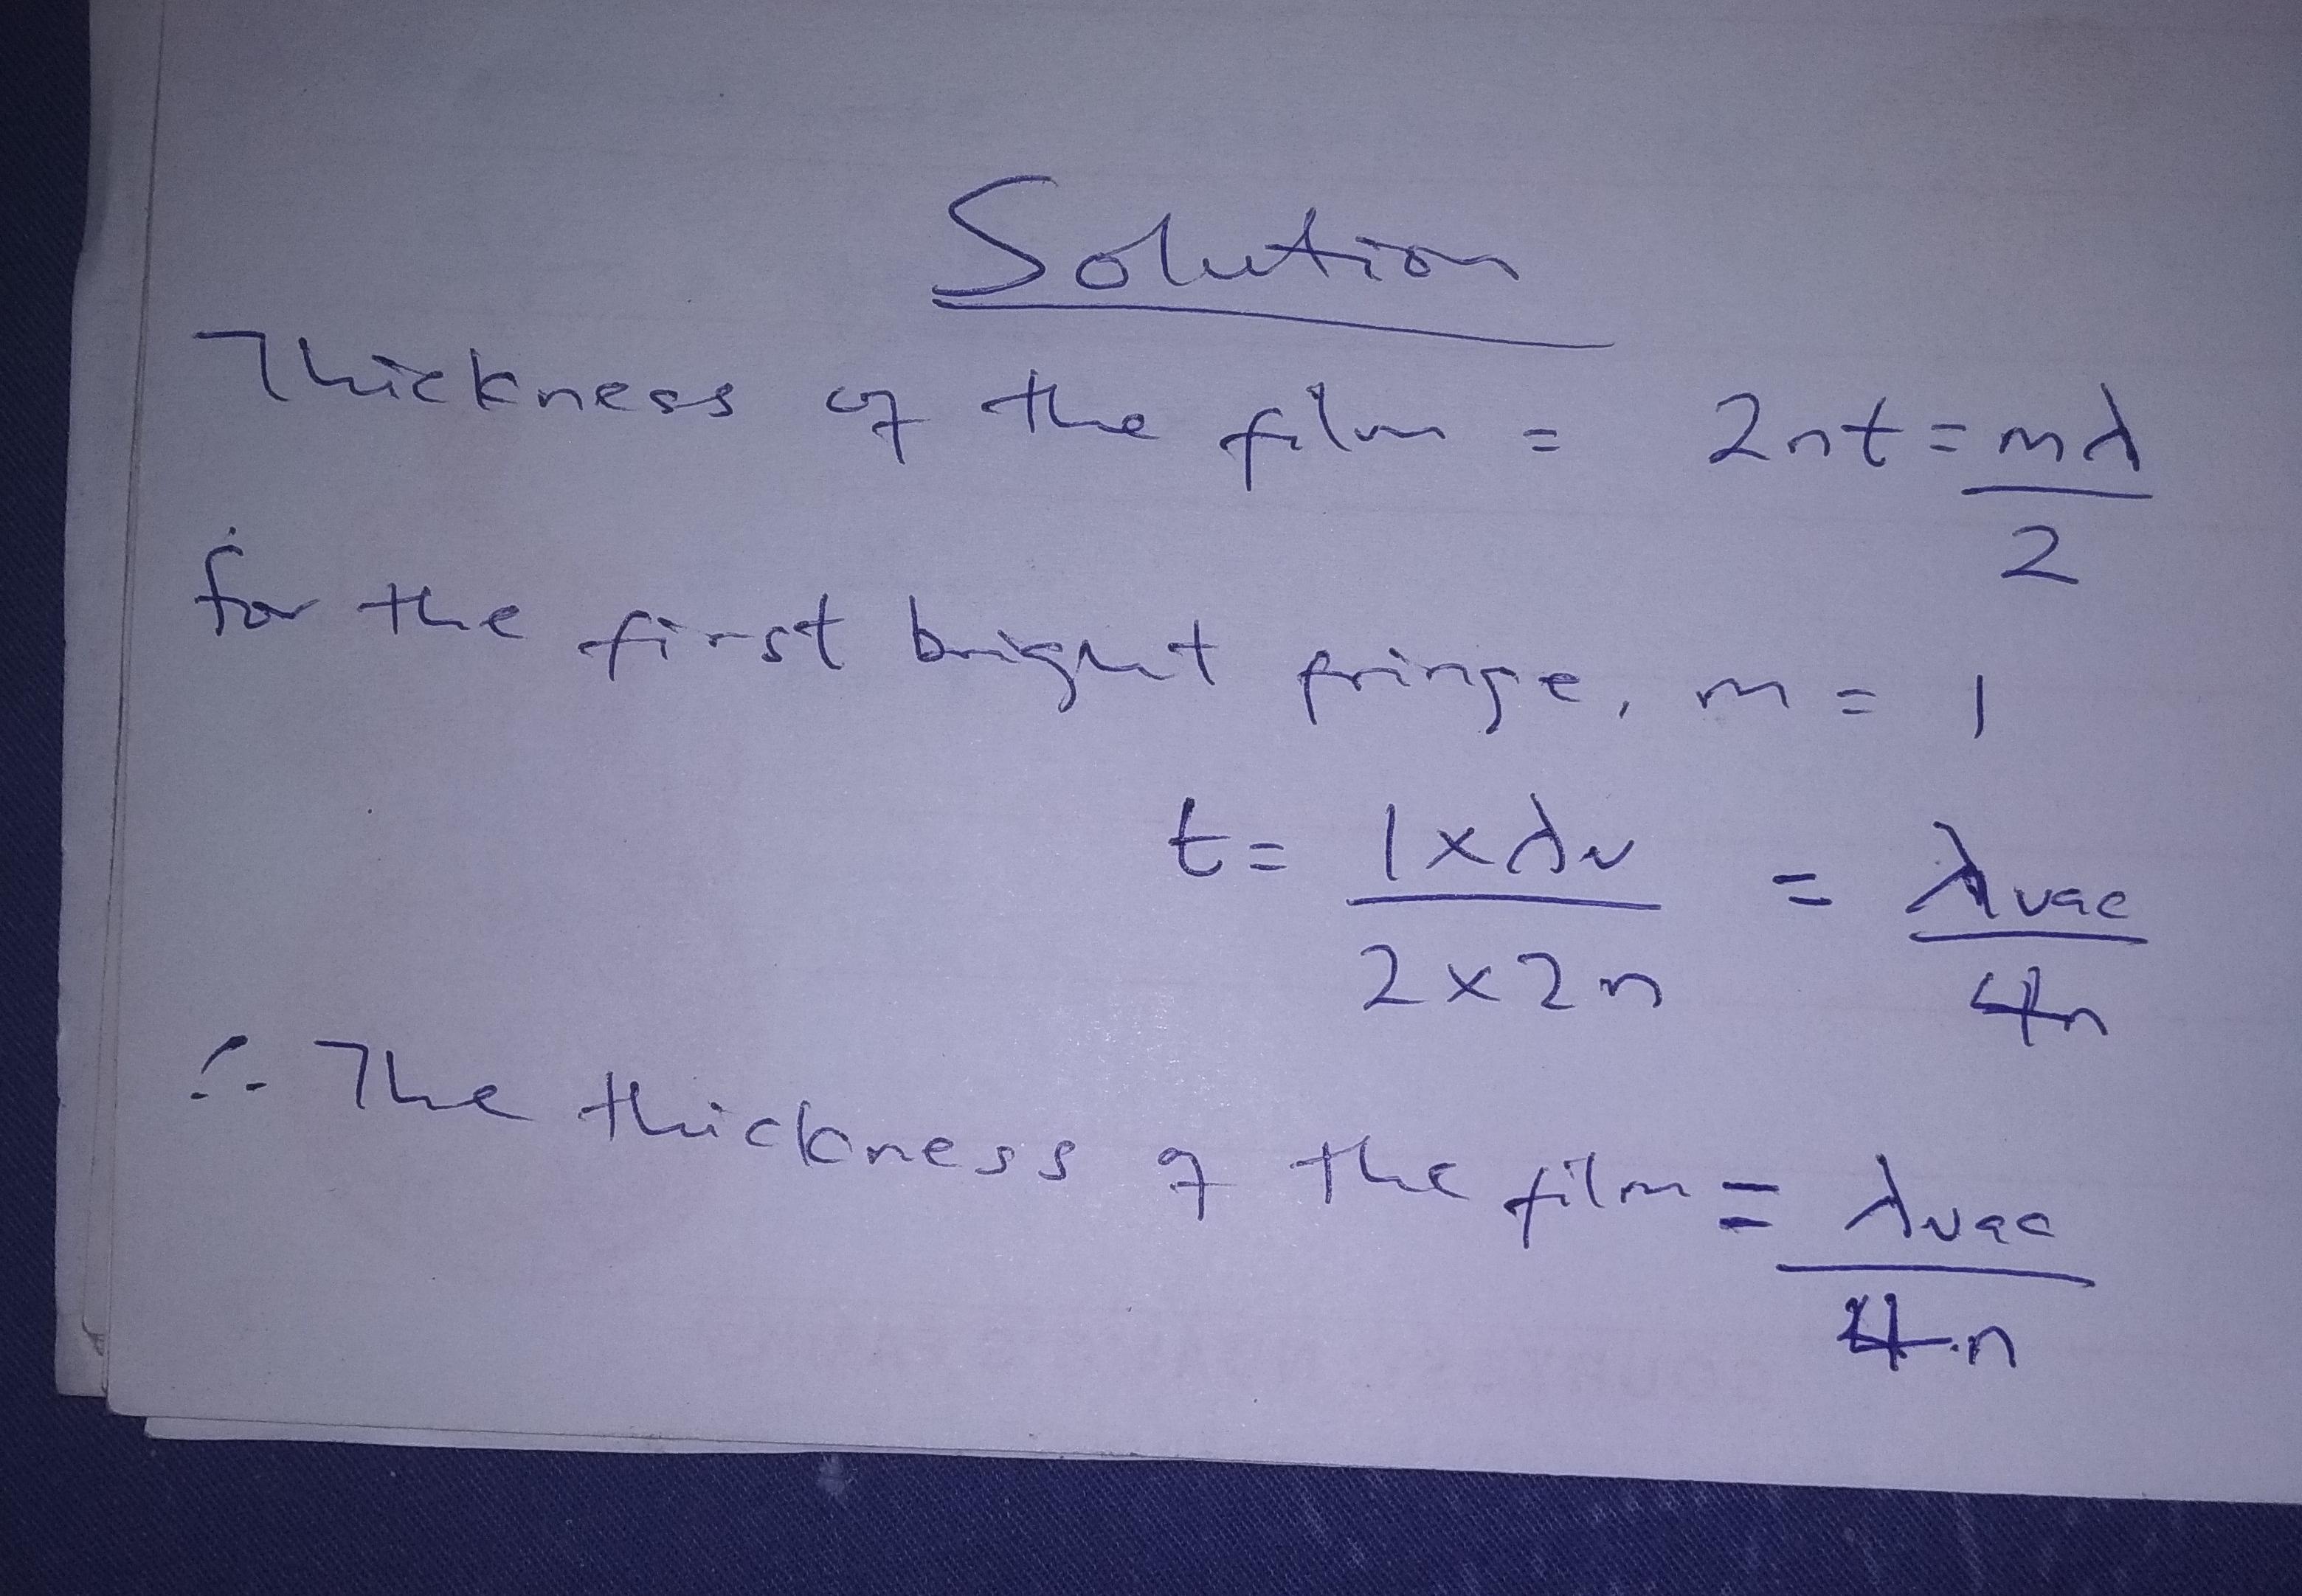 Solution
Thickness of the film = 2nt = mλ/2
for the first bright fringe, m = 1
t = 1×λv/2×2n = λvac/4n
∴ The thickness of the film = λvac/4n